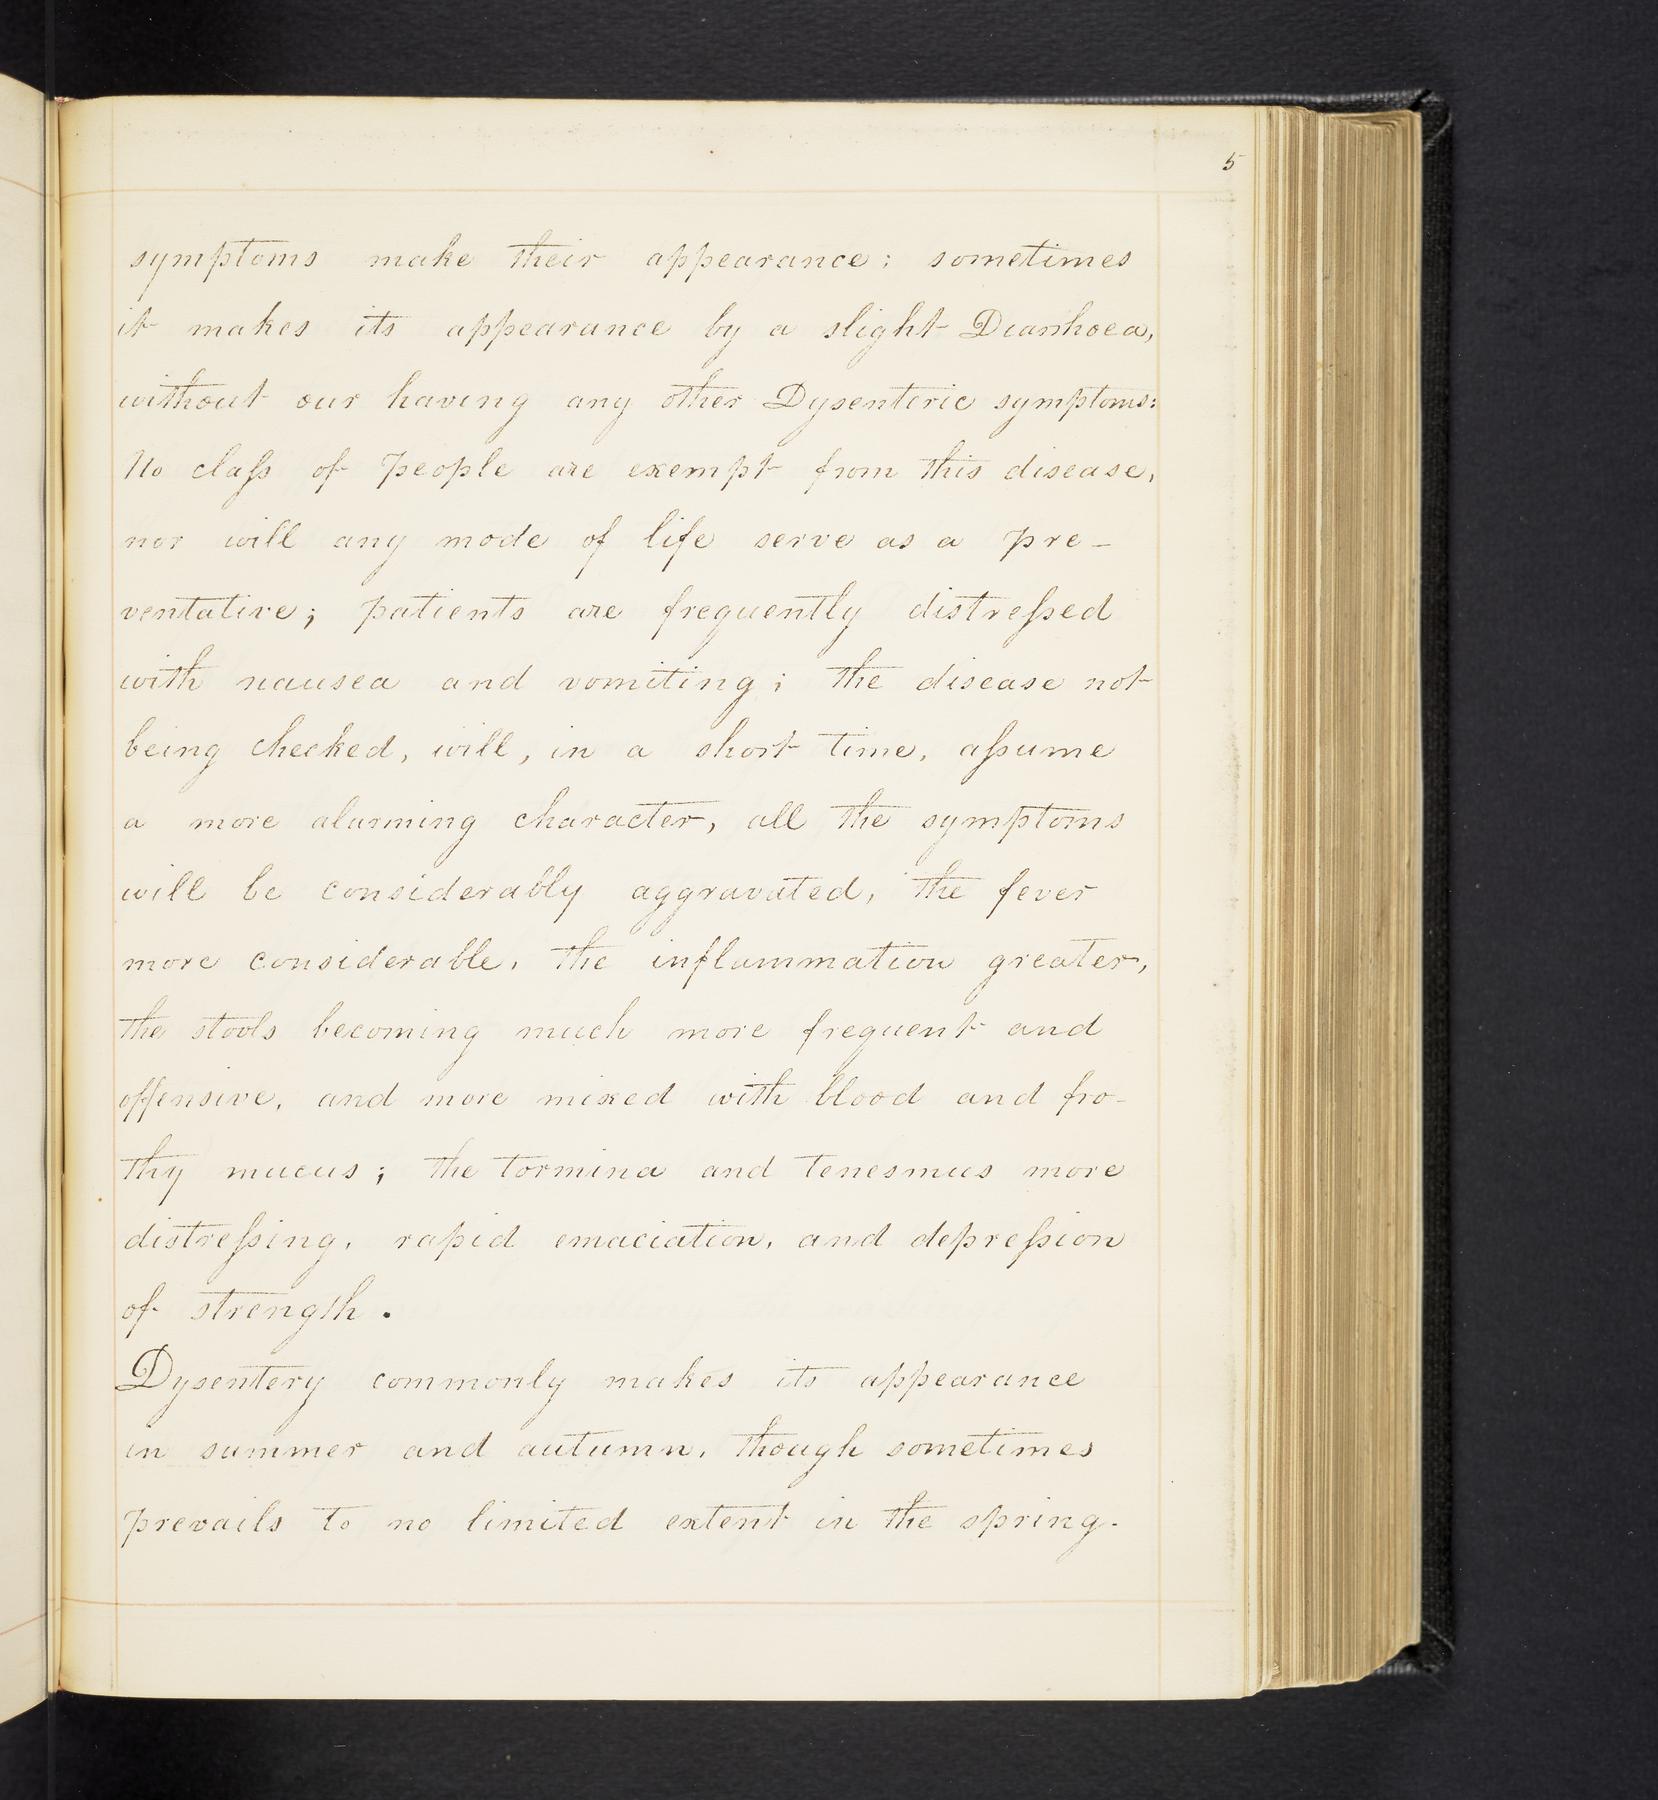 5
symptoms make their appearance; sometimes
it makes its appearance by a slight Diarrhoea,
without our having any other Dysenteric symptoms:
No claſs of people are exempt from this disease,
nor will any mode of life serve as a pre-
ventative; patients are frequently distreſsed
with nausea and vomiting; the disease not
being checked, will, in a short time, aſsume
a more alarming character, all the symptoms
will be considerably aggravated, the fever
more considerable, the inflammation greater,
the stools becoming much more frequent and
offensive, and more mixed with blood and fro-
thy mucus; the tormina and tenesmus more
distreſsing, rapid emaciation, and depreſsion
of strength.
Dysentery commonly makes its appearance
in summer and autumn, though sometimes
prevails to no limited extent in the spring.